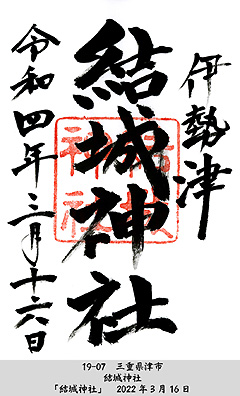 伊勢津
結城神社
令和四年三月十六日
結城
神社
19-07 三重県津市
結城神社
「結城神社」 2022年3月16日